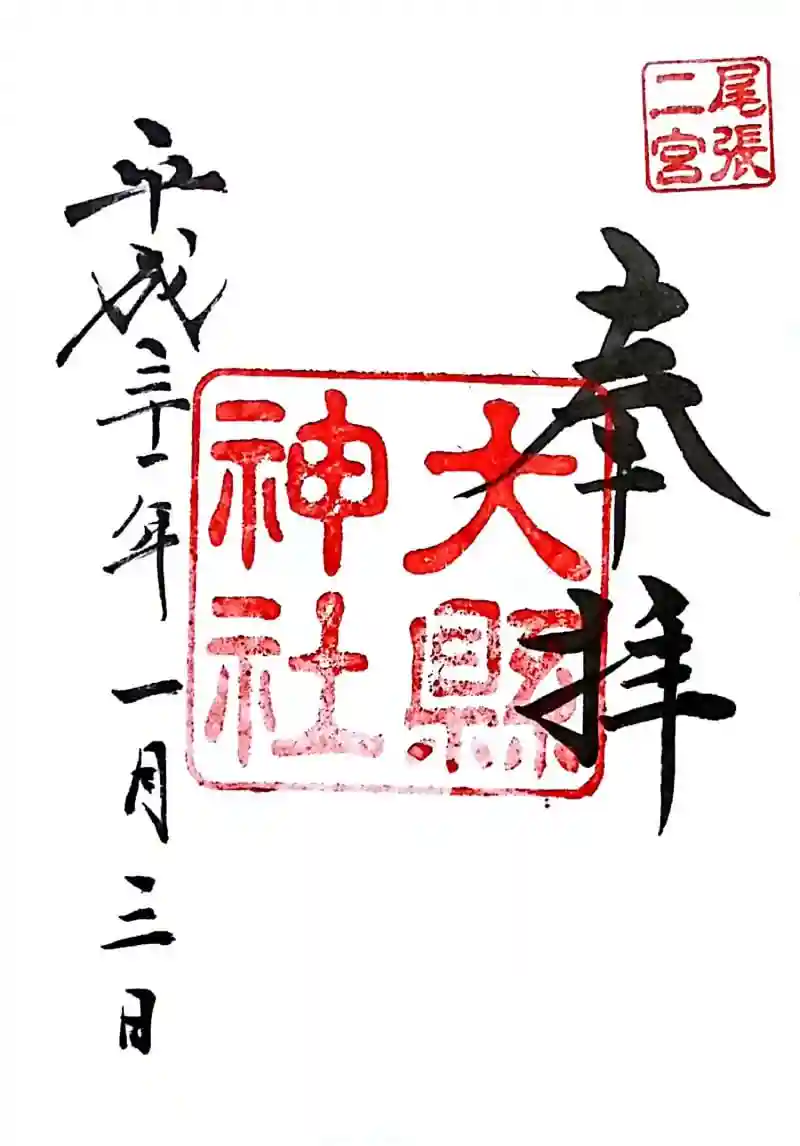 尾張
二宮
奉拝
大縣
神社
平成三十一年一月三日